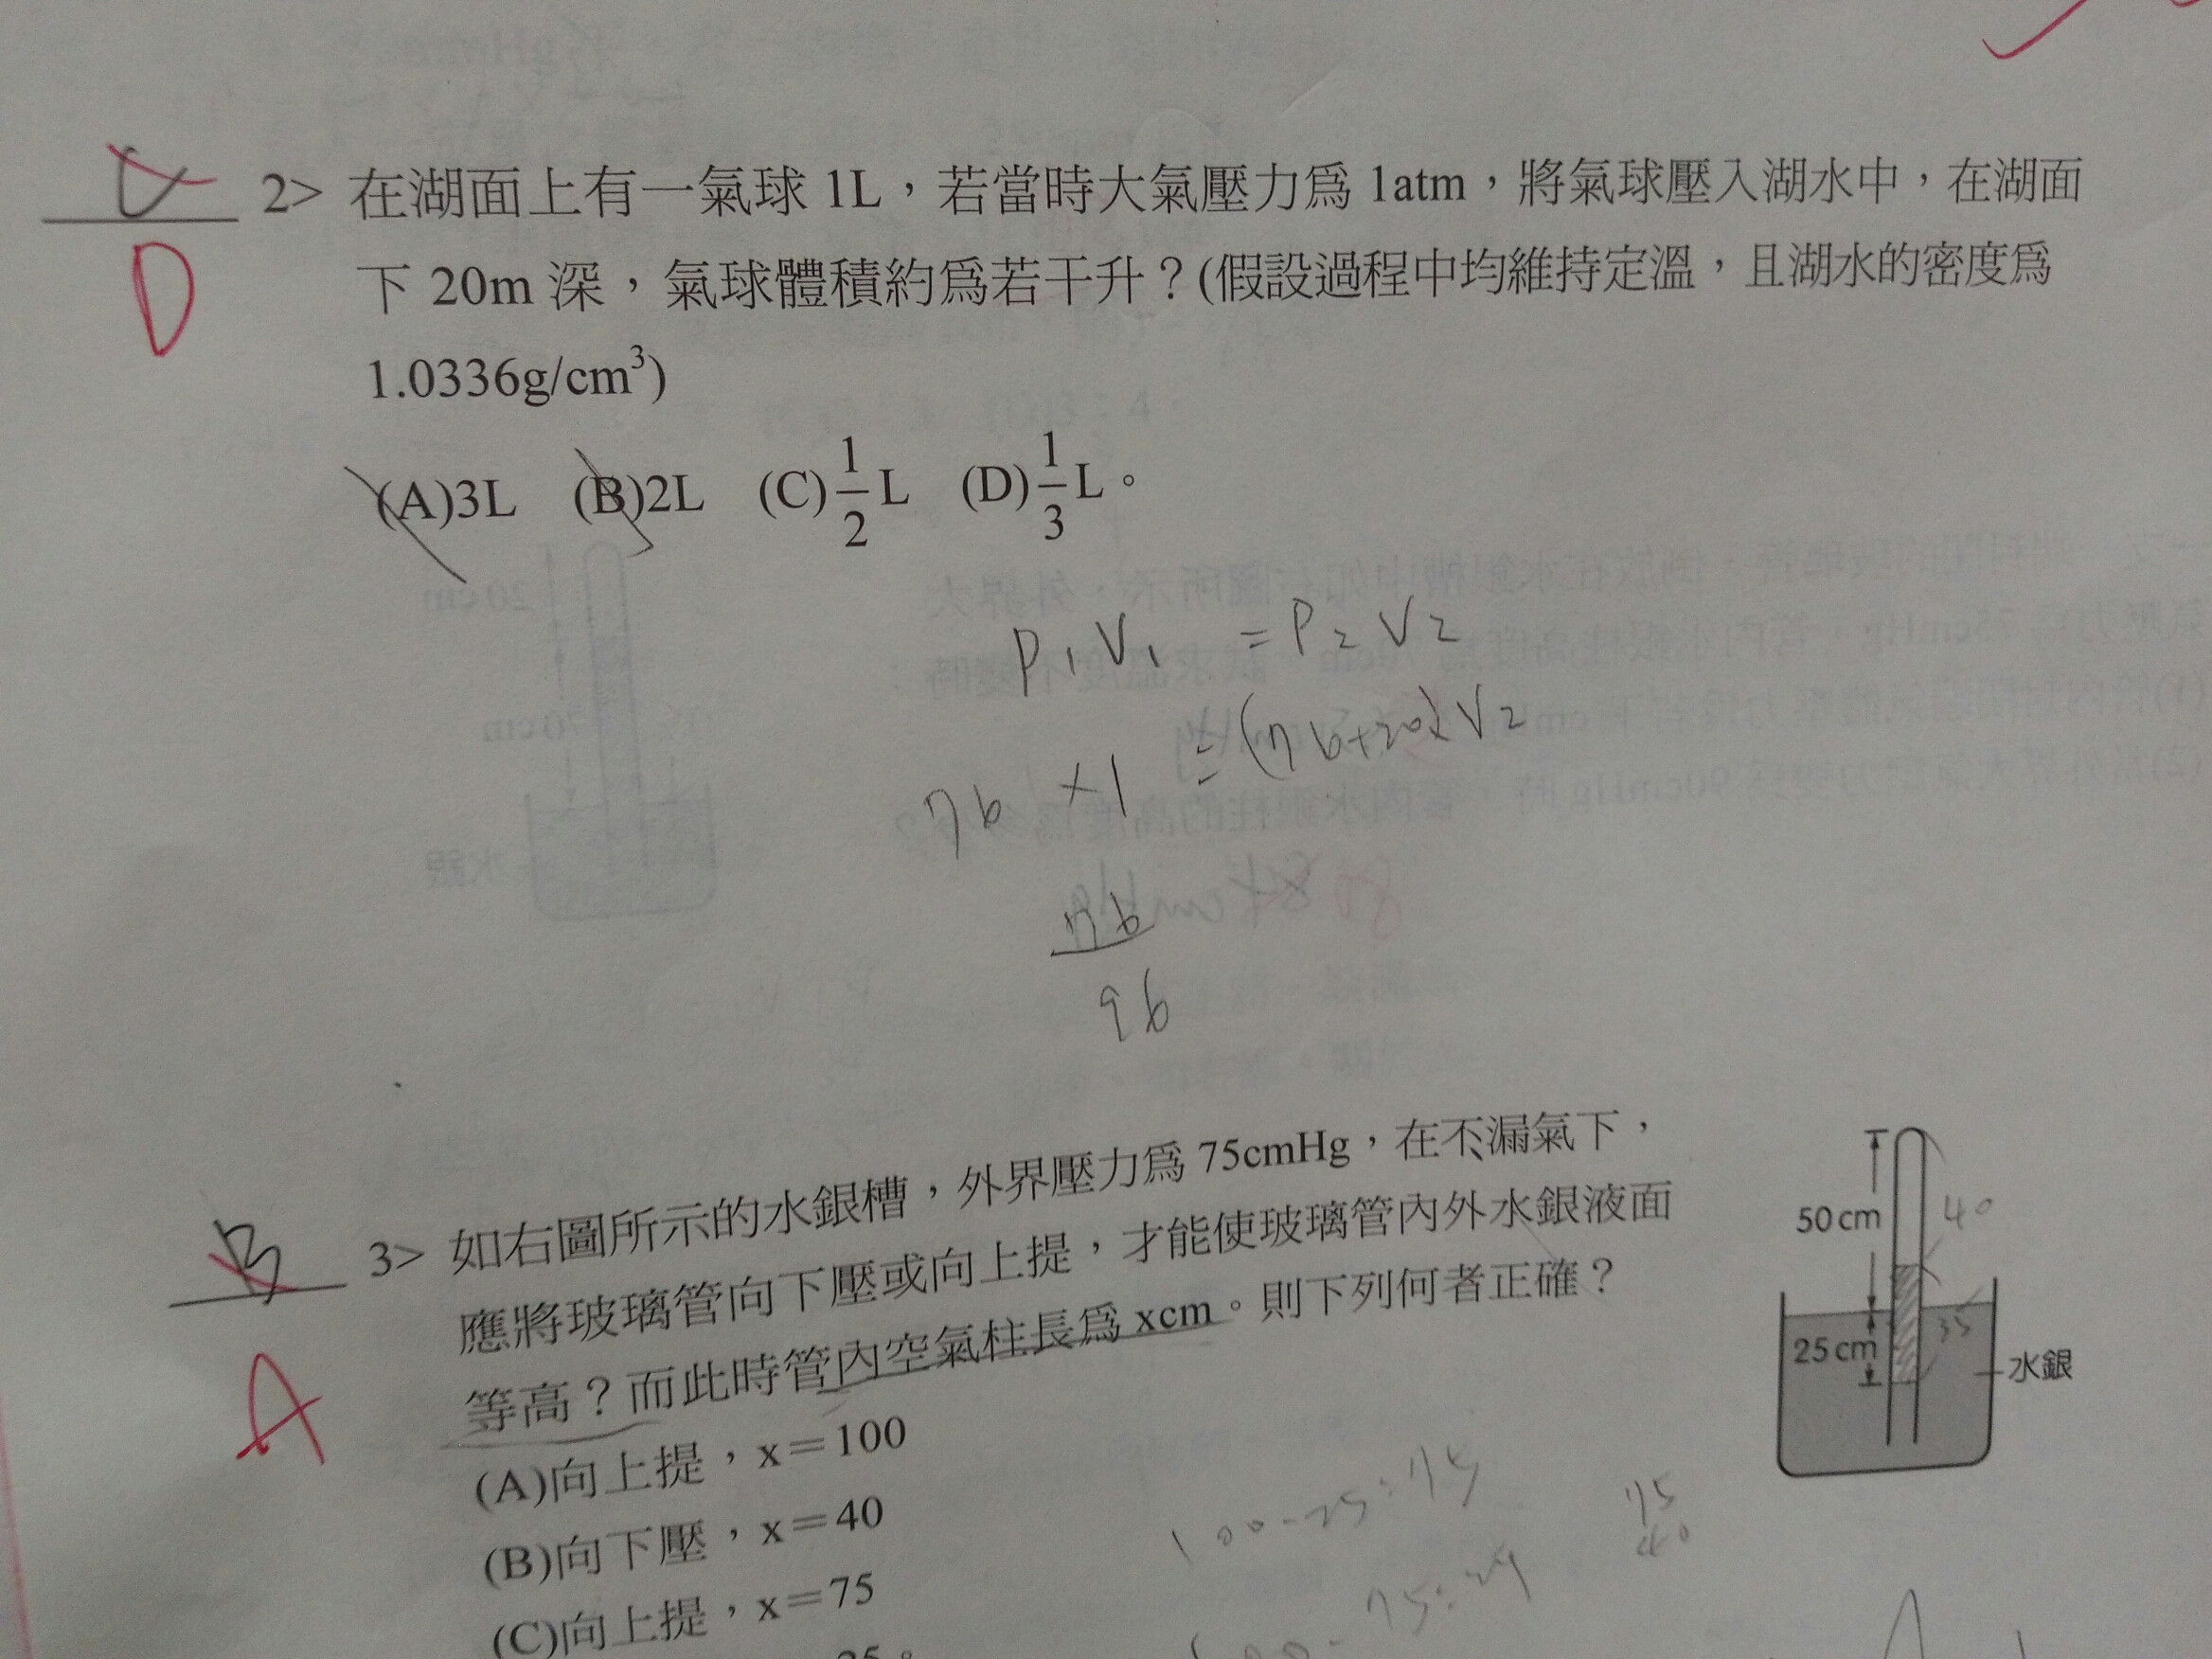 D
2> 在湖面上有一氣球 1L，若當時大氣壓力爲 1atm，將氣球壓入湖水中，在湖面
下 20m 深，氣球體積約爲若干升？(假設過程中均維持定溫，且湖水的密度爲
1.0336g/cm³)
(A)3L (B)2L (C)1/2 L (D)1/3 L。
P₁V₁ = P₂V₂
76 × 1 = (76+20)V₂
76
96
B 3> 如右圖所示的水銀槽，外界壓力爲 75cmHg，在不漏氣下，
應將玻璃管向下壓或向上提，才能使玻璃管內外水銀液面
A
等高？而此時管內空氣柱長爲 xcm。則下列何者正確？
(A)向上提，x＝100
(B)向下壓，x＝40
(C)向上提，x＝75
50 cm
40
25 cm
35
水銀
100-25=75
75
40